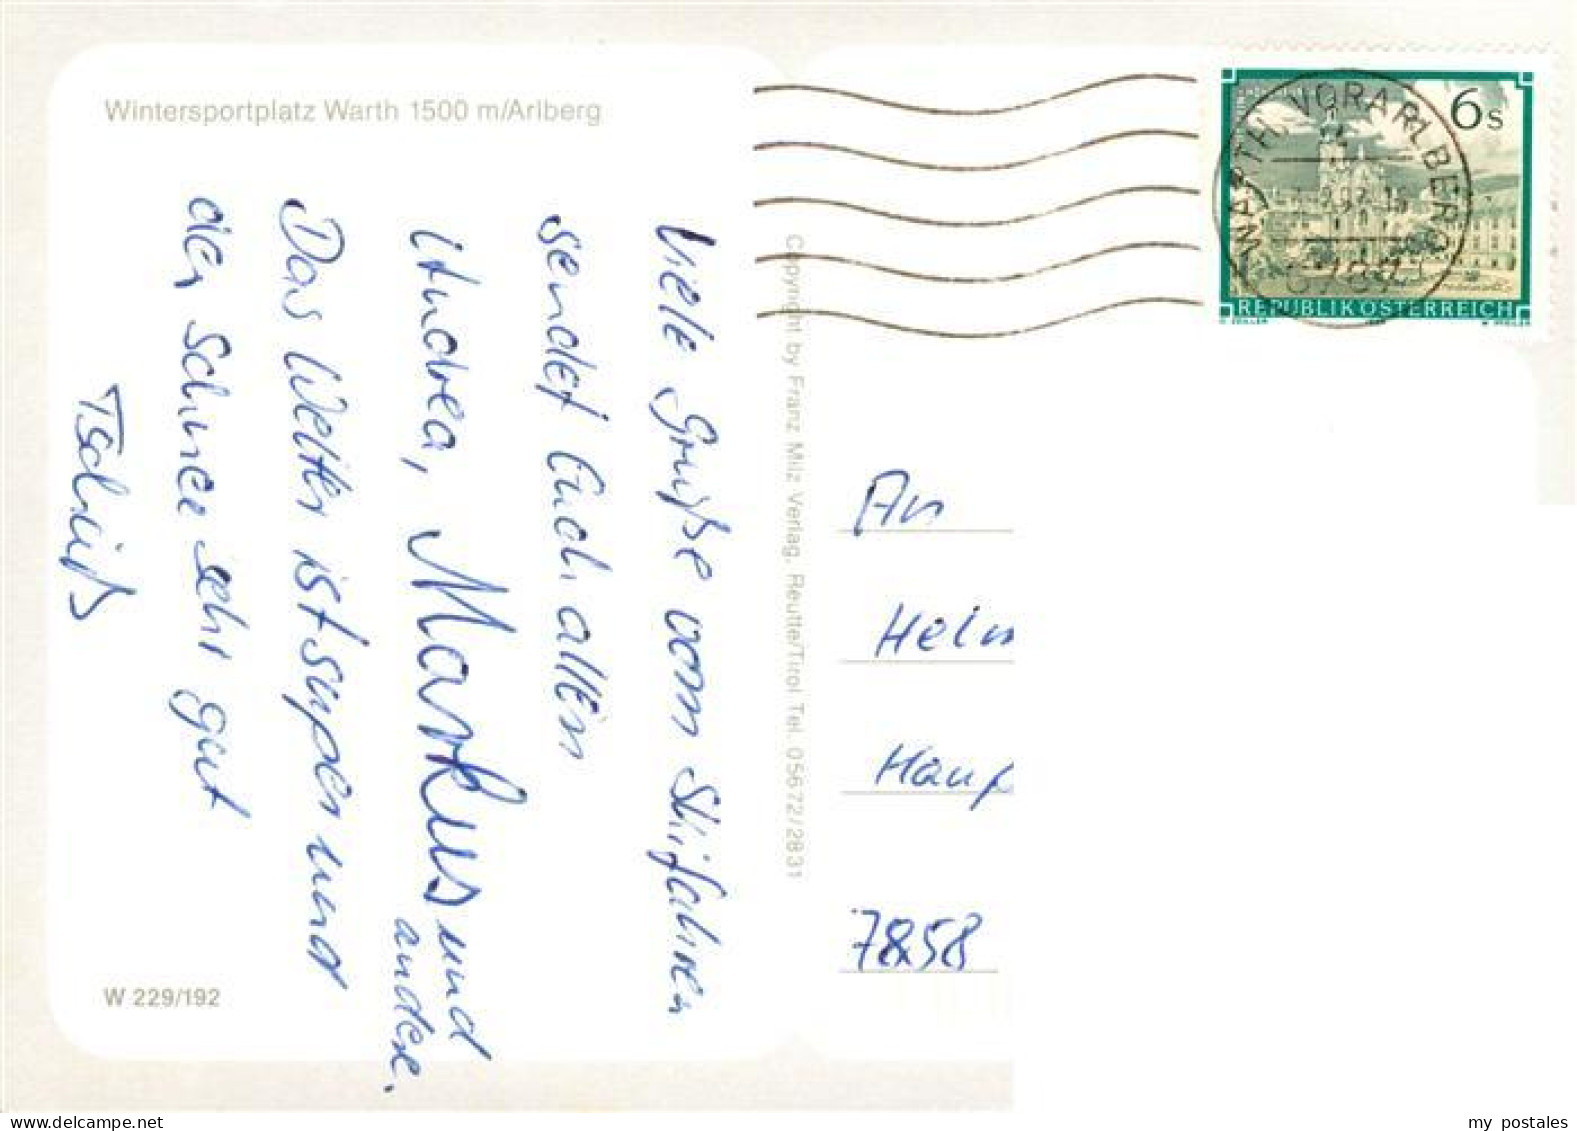 Wintersportplatz Warth 1500 m/Arlberg
Viele Grüße vom Skifahren
sendet Euch allen
Andrea, Markus und
andere.
Das Wetter ist super und
der Schnee sehr gut
Tschüß
W 229/192
Copyright by Franz Milz Verlag, Reutte/Tirol Tel. 05672/2831
WARTH, VORARLBERG
6 s
REPUBLIK ÖSTERREICH
An
Helm
Haup
7858
delcampe.net
my_postales